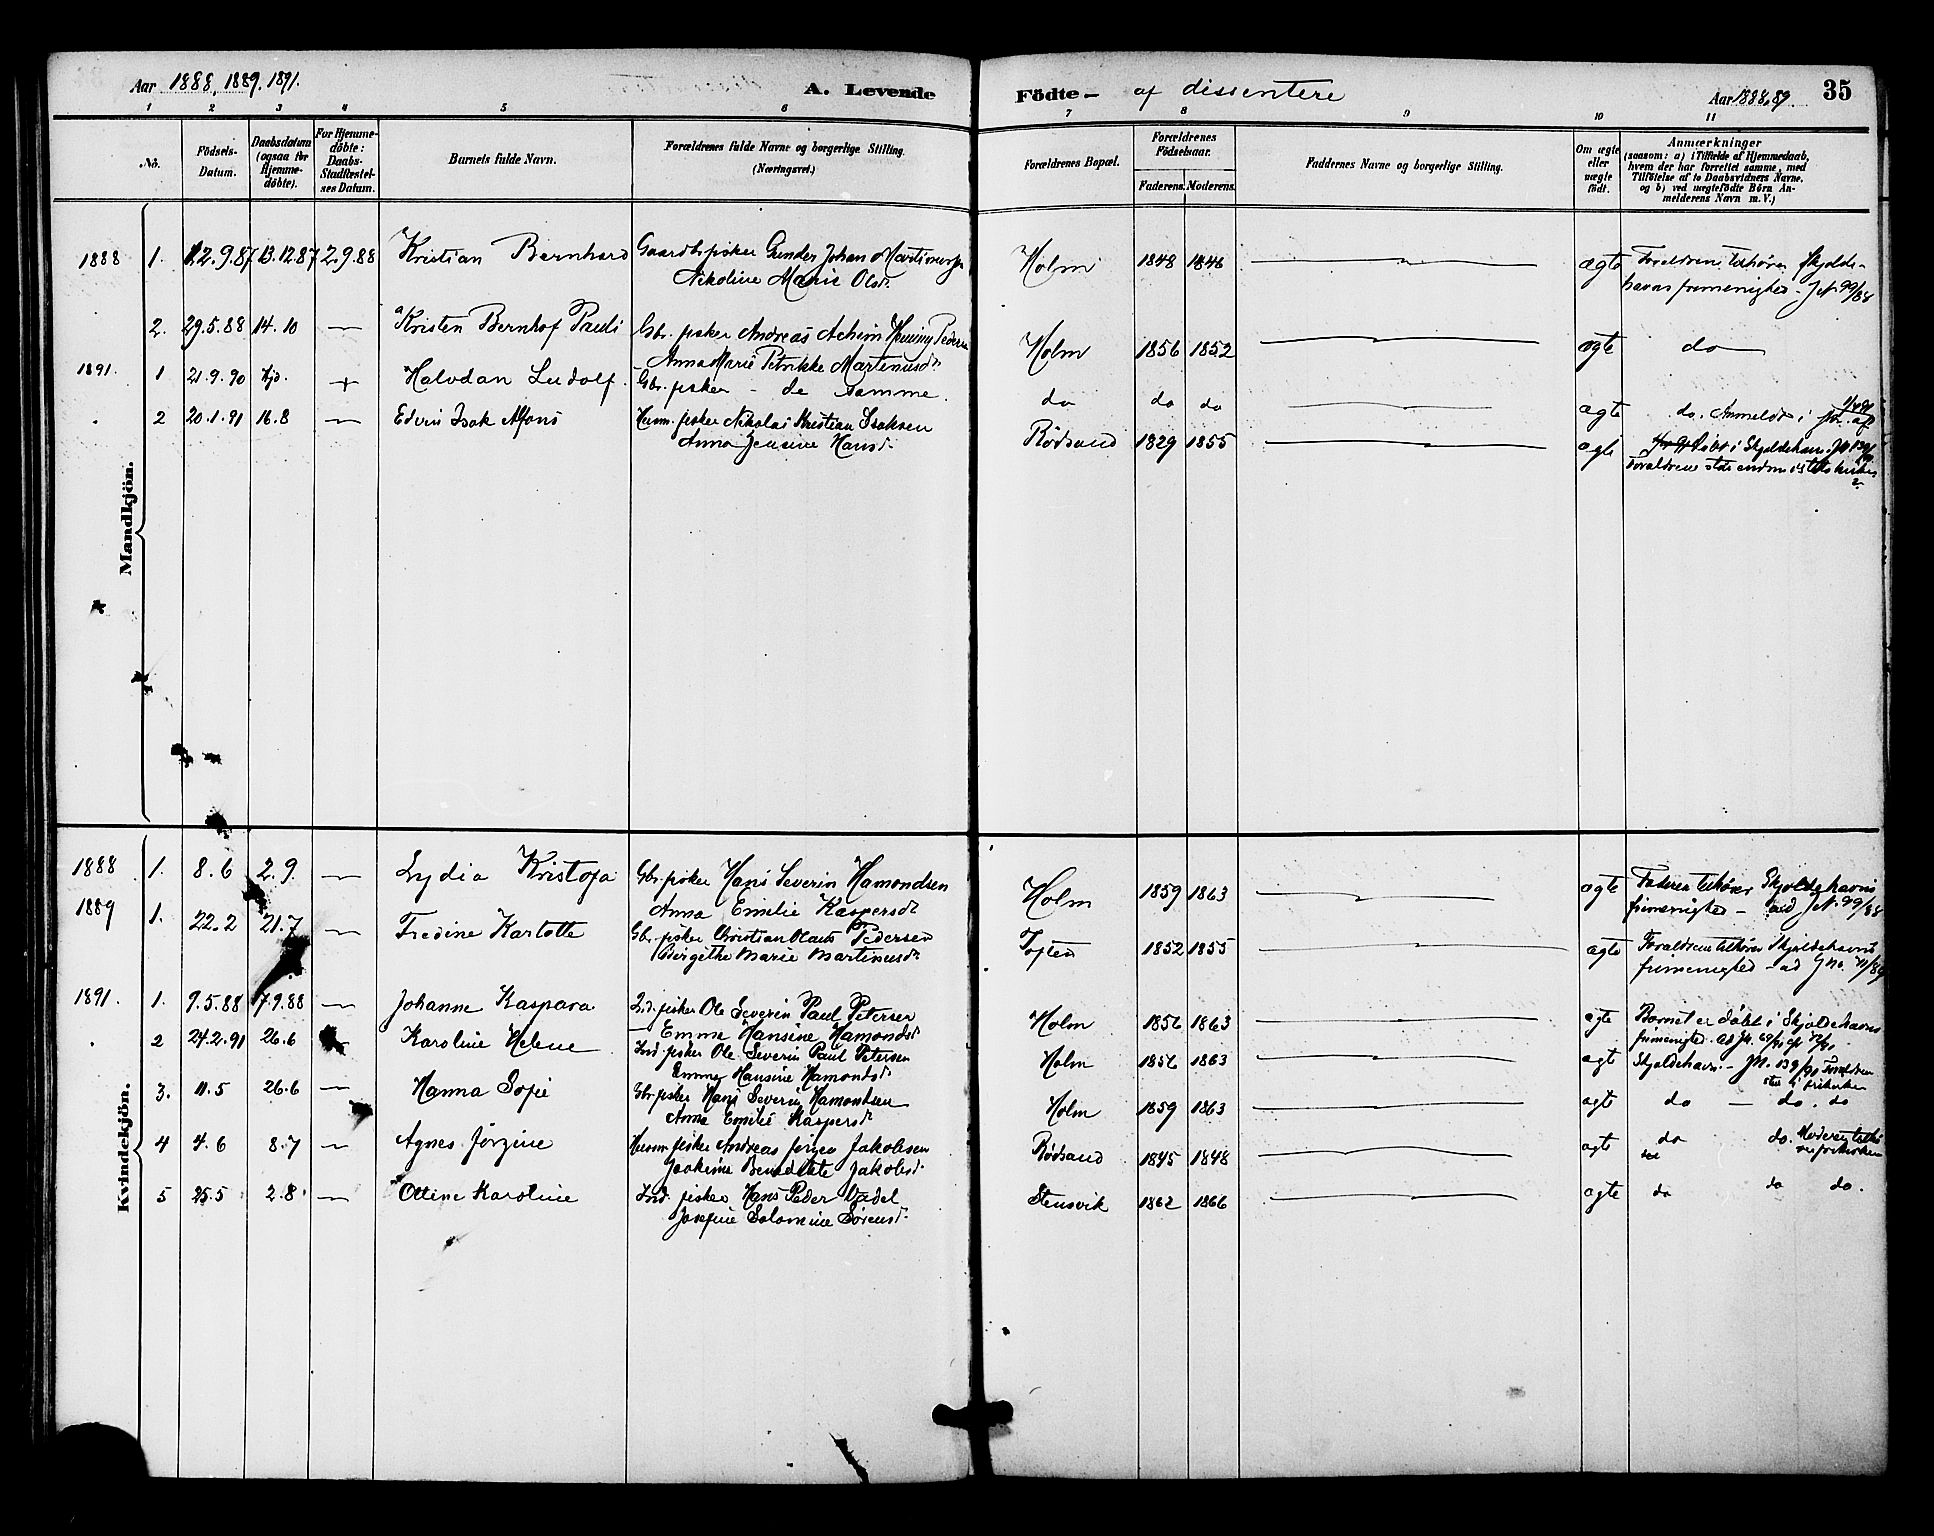 Aar 1888, 1889, 1891.
A. Levende
Födte - af dissentere
Aar 1888, 89
35
1 2 3 4 5 6 7 8 9 10 11
No.
Födsels-
Datum.
Daabsdatum
(ogsaa for
Hjemme-
döbte).
For Hjemme-
döbte:
Daabs-
Stadfæstel-
ses Datum.
Barnets fulde Navn.
Forældrenes fulde Navne og borgerlige Stilling.
(Næringsvei.)
Forældrenes Bopæl.
Forældrenes
Födselsaar.
Faderens. Moderens.
Faddernes Navne og borgerlige Stilling.
Om ægte
eller
uægte
födt.
Anmærkninger
(saasom: a) i Tilfælde af Hjemmedaab,
hvem der har forrettet samme, med
Tilföielse af to Daabsvidners Navne.
og b) ved uægtefödte Börn An-
melderens Navn m. V.)
Mandkjön.
1888 1. 12.9.87 13.12.87 2.9.88 Kristian Bernhard Gaardb. fisker Gunder Johan
Nikoline Marie Olsd.
Holm 1848 1846 ægte Forældrene tilhører Skjolde-
havns frimenighed - J.N. 99/88
2. 29.5.88 14.10 — Kristen Bernhof Pauli Gbr. fisker Andreas Achim Henning Pedersen
Anna Marie Petrikke Martinusd.
Holm 1856 1852 ægte do
1891. 1 21.9.90 Hjd. + Halvdan Ludolf. Gbr. fisker - de samme.
do do do ægte do. Anmeldt i
2 20.1.91 16.8 — Edvin Isak Alfons Huusm. fisker Nikolai Kristian Isaksen
Anna Jensine Hansd.
Rödsand 1829 1855 ægte döbt i Skjoldehavn.
Forældrene
Kvindekjön.
1888 1. 8.6 2.9. — Lydia Kristofa Gbr. fisker Hans Severin Hamondsen
Anna Emelie Kaspersd.
Holm 1859 1863 ægte Faderen tilhører Skjoldehavns
frimenighed - ad J.N. 99/88
1889 1. 22.2 21.7 — Fredine Karlotte Gbr. fisker Christian Olaus Pedersen
Birgethe Marie Martinusd.
Toften 1852 1855 ægte Forældrene tilhører Skjoldehavns
frimenighed - ad J no.
1891. 1. 9.5.88 7.9.88 — Johanne Kaspara Ind. fisker Ole Severin Paul Petersen
Emme Hansine Hamondsd.
Holm 1856 1863 ægte Barnet er döbt i Skjoldehavns
frimenighed.
2 24.2.91 26.6 Karoline Helene Ind. fisker Ole Severin Paul Petersen
Emme Hansine Hamondsd.
Holm 1856 1863 ægt Skjoldehavn - J.N. 139/91 Forældrene
3. 11.5 26.6 — Hanna Sofie Gbr. fisker Hans Severin Hamondsen
Anna Emelie Kaspersd.
Holm 1859 1863 ægt do — do. do
4 4.6 8.7 — Agnes Jørgine Huusm. fisker Andreas Jørgen Jakobsen
Joakime Benedikte Jakobsd.
Rödsand 1845 1848 ægt do do. Moderen
5 25.5 2.8 — Ottine Karoline Ind. fisker Hans Peder Vadel
Josefine Salomine Sörensd.
Stensvik 1862 1866 ægte do do do.